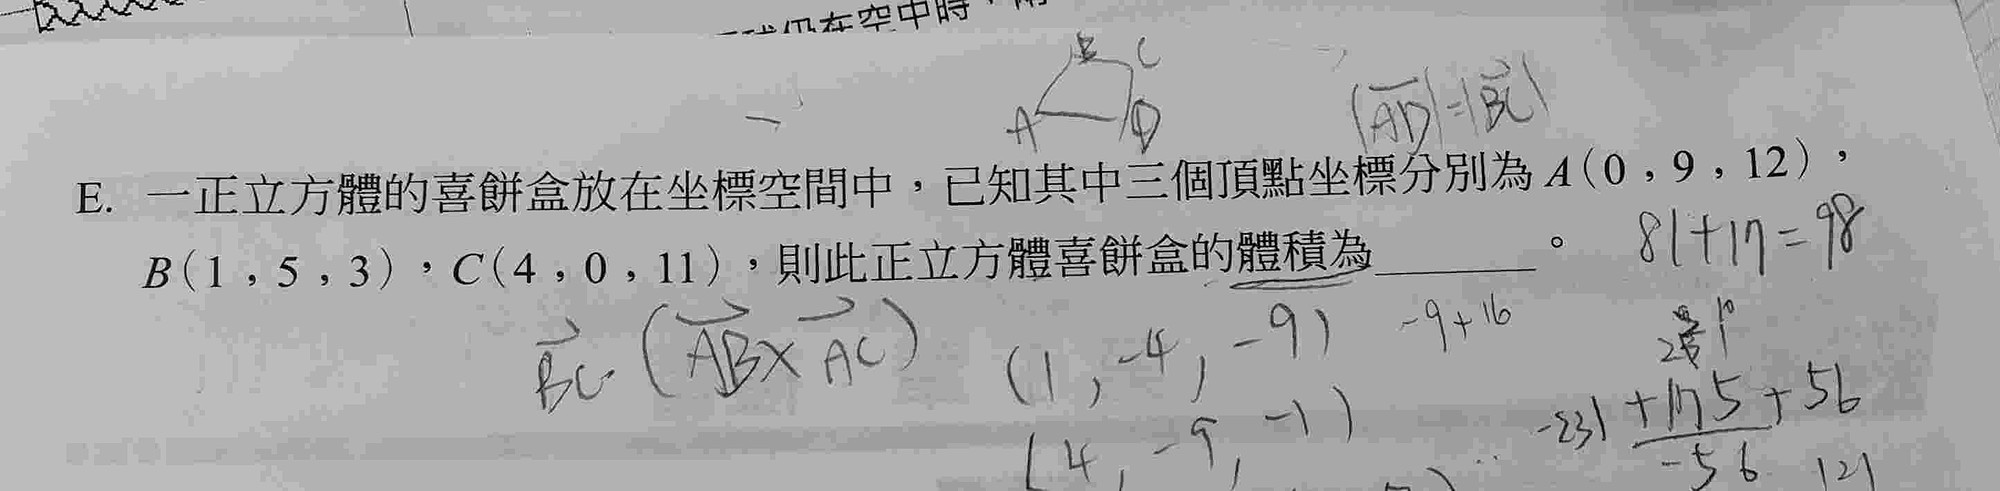 球仍在空中時，
B C
A D
|AD|=|BC|
E. 一正立方體的喜餅盒放在坐標空間中，已知其中三個頂點坐標分別為 A(0，9，12)，
B(1，5，3)，C(4，0，11)，則此正立方體喜餅盒的體積為＿＿＿＿。 81+17=98
BC·(AB×AC) (1,-4,-9) -9+16
(4,-9,-1) -231+175+56
-56 121